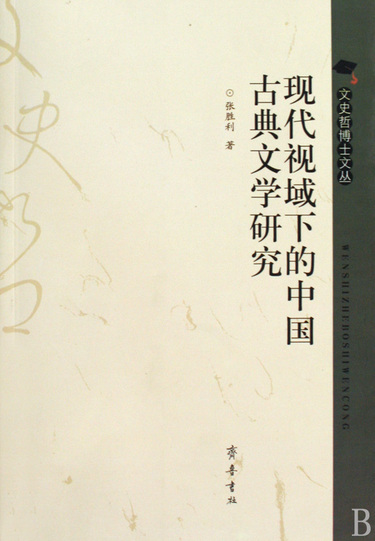 文史哲博士文丛
WENSHIZHEBOSHIWENCONG
现代视域下的中国
古典文学研究
⊙张胜利 著
齊鲁書社
文史哲
B